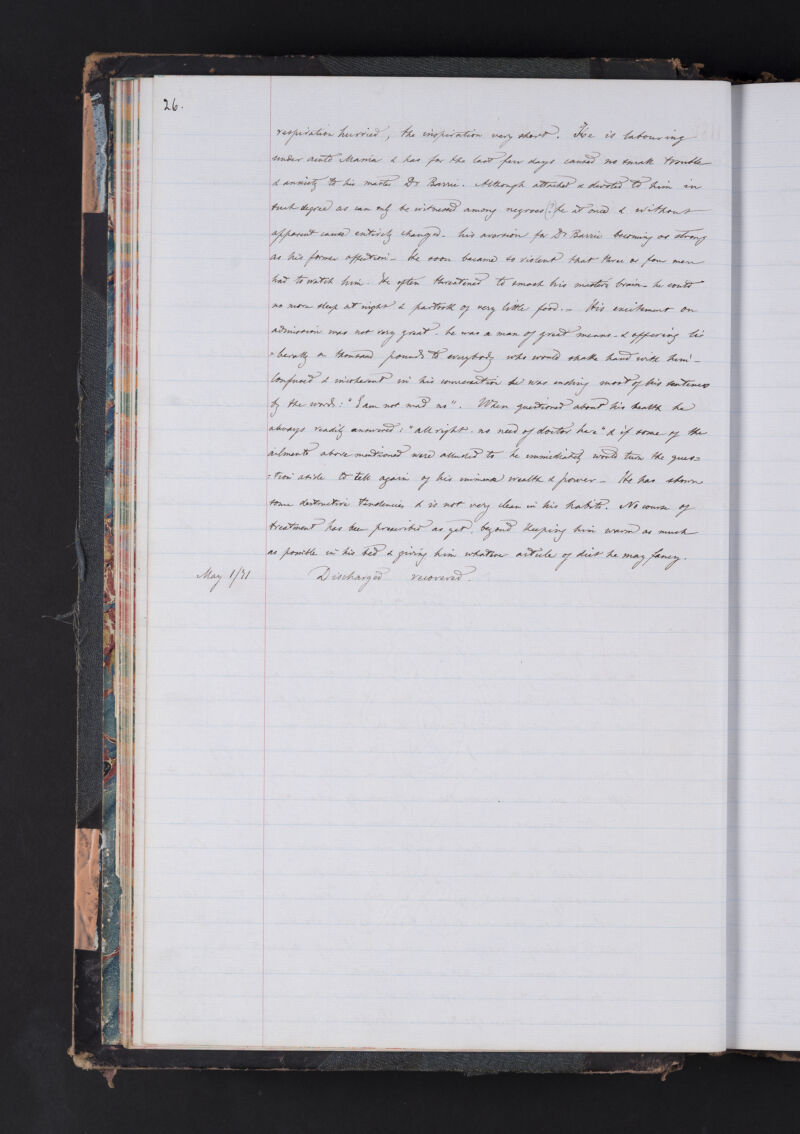 26.
respiration hurried, the inspiration very short. He is labouring
under acute Mania & has for the last few days caused no small trouble
& anxiety to his master Dr Barrie. Although attached & devoted to him in
such degree as can only be witnessed among negroes he at once & without
apparent cause entirely changed - his aversion for Dr Barrie becoming as strong
as his former affection - He soon became so violent that three or four men
had to watch him. He often threatened to smash his master's brain - he could
no more sleep at night & partook of very little food. - His excitement on
admission was not very great - he was a man of great means - & offering li
=berally a thousand pounds to everybody who would shake hand with him -
Confused & incoherent in his conversation he was ending most of his sentences
by the words: "I am not mad no". When questioned about his health he
always readily answered: "all right. no need of doctor here" & if some of the
ailments above mentioned were alluded to he immediately would turn the ques=
=tion aside to tell again of his immense wealth & power - He has shown
some destructive tendencies & is not very clean in his habits. No course of
treatment has been prescribed as yet, beyond keeping him warm as much
as possible in his bed & giving him whatever article of diet he may fancy.
May 1/71 Discharged recovered.